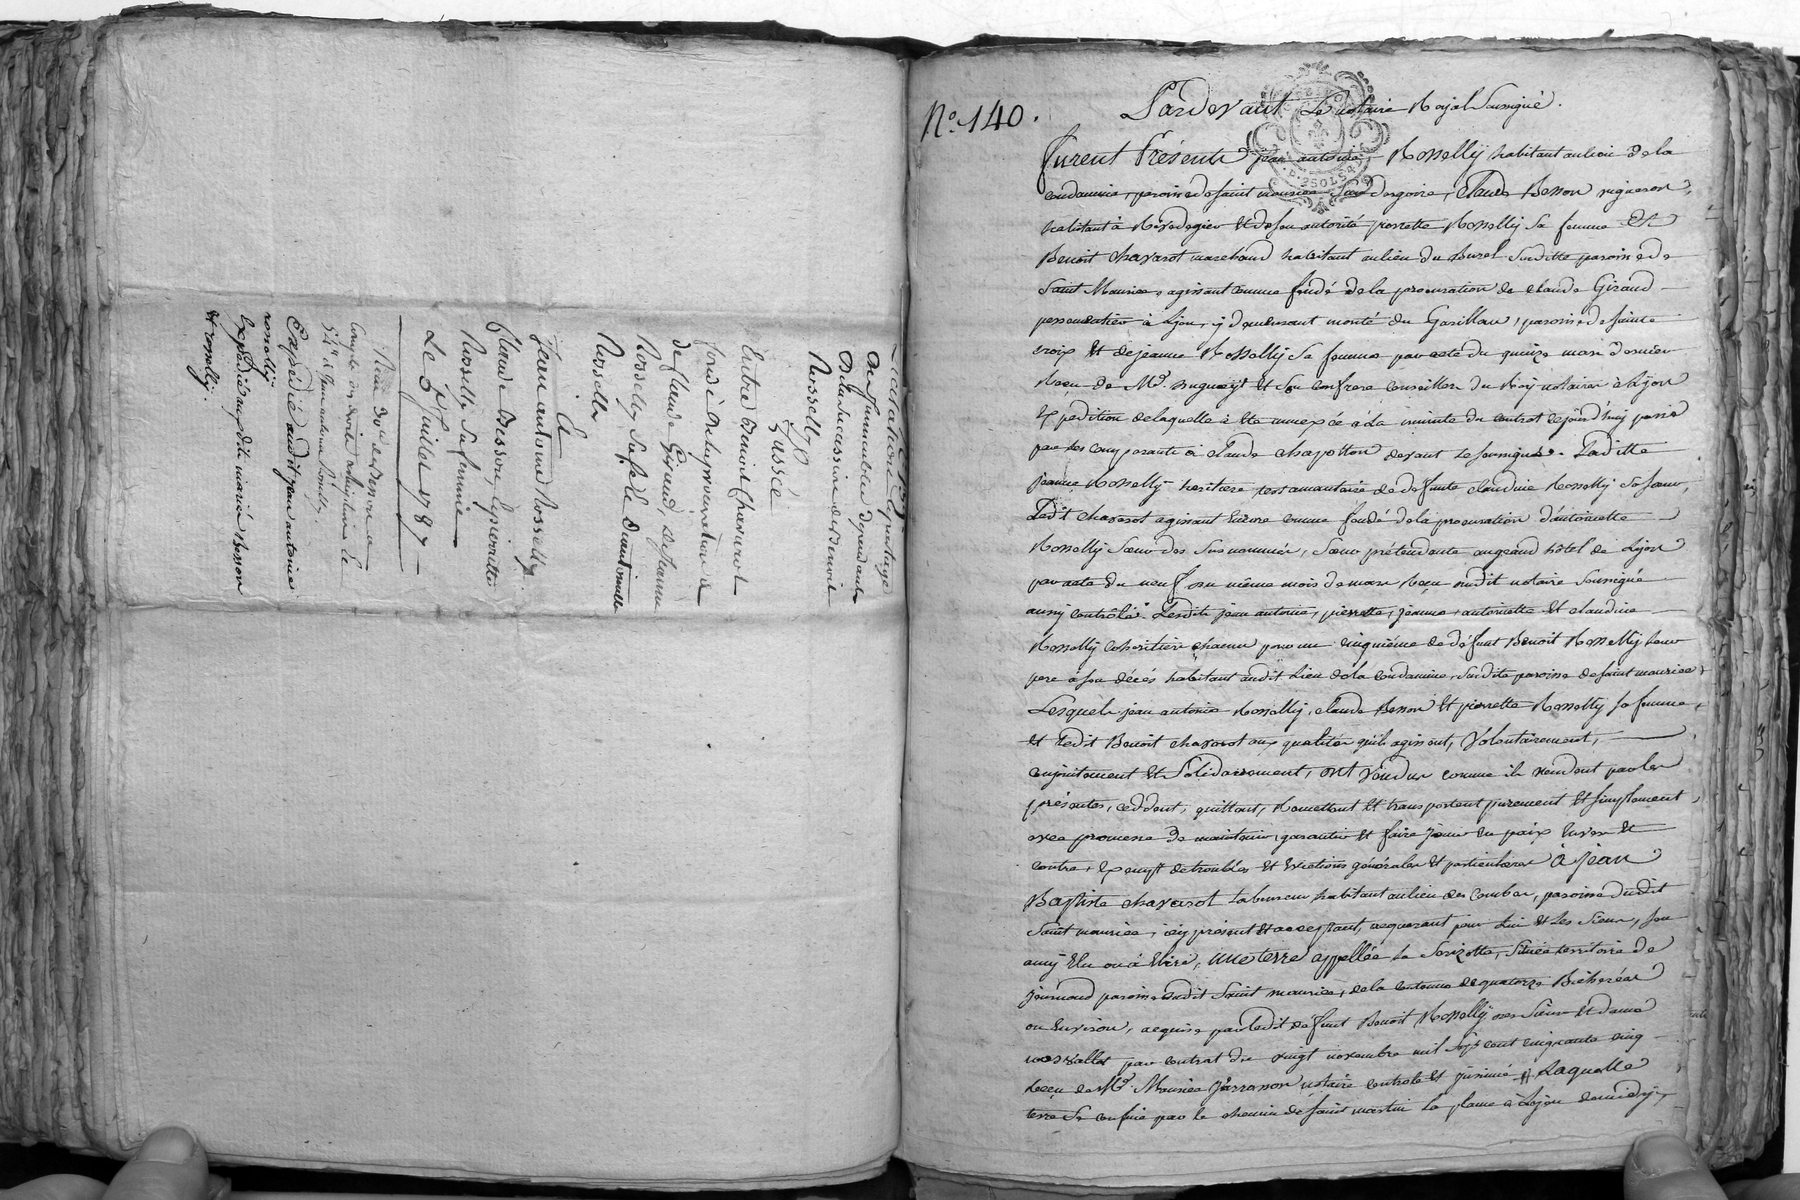 De Immeubles dependants
De la succession de Benoit
Rosselly
Entre Benoit Chavarot
fondé de la procuration
de Claude Giraud, de Jeanne
Rosselly sa femme
Rosselly
Et
Jean antoine Rosselly
Claude Besson, & pierrette
Rosselly sa femme
Le 5 Juillet 1787
Expédié audit jean antoine
rosselly
Expédié aux dits mariés Besson
et rosselly.
N.º 140.
Pardevant Le notaire Royal Soussigné.
furent Présents jean antoine Rosselly habitant au lieu de la
condamine, paroisse de saint maurice sur dargoire, Claude Besson vigneron,
habitant à et de son autorité pierrette Rosselly sa femme Et
Benoit chavarot marchand habitant au lieu du Burel Susditte paroisse de
Saint Maurice, agissant comme fondé de la procuration de claude Giraud
à Lyon, y demeurant montée du Gorillan, paroisse de sainte
croix Et de jeanne Rosselly Sa femme par acte du quinze mars dernier
Reçu de Me. et Son confrere conseillers du Roy notaires à Lyon
Expedition de laquelle à été annexée à la minute du contrat cejourd'huy passé
par les comparants à claude chapotton devant le soussigné. Laditte
jeanne Rosselly heritiere testamentaire de defunte claudine Rosselly sa sœur,
Ledit chavarot agissant Encore comme fondé de la procuration d'antoinette
Rosselly Sœur des Susnommés, Sœur prétendante au grand hôtel de Lyon
par acte du neuf du même mois de mars Reçu dudit notaire Soussigné
aussy contrôlé. Lesdits jean antoine, pierrette, jeanne, antoinette et claudine
Rosselly cohéritiers chacun pour un cinquième de défunt Benoit Rosselly leur
pere à son décés habitant audit Lieu de la condamine, susdite paroisse de saint maurice,
Lesquels jean antoine Rosselly, claude Besson Et pierrette Rosselly sa femme,
et Ledit Benoit chavarot aux qualités qu'ils agissent, Volontairement,
conjointement Et Solidairement, ont Vendus comme ils vendent par les
présentes, ceddent, quittent, Remettent Et transportent purement Et simplement,
avec promesse de maintenir, garantir Et faire jouir En paix Envers Et
contre, Exempt de troubles Et Evictions générales Et particulieres à jean
Baptiste chavarot Laboureur habitant au lieu des Combes, paroisse dudit
Saint maurice, icy présent Et acceptant, requerant pour Lui Et Les Siens, son
amy Elu ou à Elire, une terre appellée la Sorizotte, Située territoire de
journoud paroisse dudit Saint maurice, de la contenue de quatorze Bicherées
ou Environ, acquise par Ledit defunt Benoit Rosselly des Sieur Et dame
par contrat du vingt novembre mil sept cent cinquante cinq
Reçu de Me. Maurice notaire controlé Et Jnsinué Laquelle
terre Se confine par le chemin de saint martin la plaine à Lyon de midy,